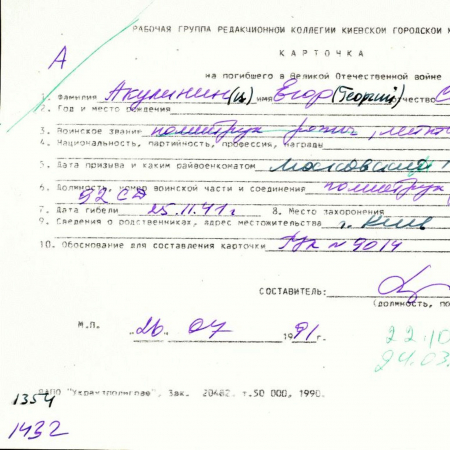 РАБОЧАЯ ГРУППА РЕДАКЦИОННОЙ КОЛЛЕГИИ КИЕВСКОМ ГОРОДСКОМ
А
КАРТОЧКА
на погибшего в Великой Отечественной войне
1. Фамилия Акулинин(ы) имя Егор (Георгий) чество
2. Год и место рождения
3. Воинское звание политрук
4. Национальность, партийность, профессия, награды
5. Дата призыва и каким райвоенкоматом Московский
6. Должность, номер воинской части и соединения политрук
92 СД
7. Дата гибели 25.11.41г 8. Место захоронения
9. Сведения о родственниках, адрес местожительства г. Киев
10. Обоснование для составления карточки № 9014
СОСТАВИТЕЛЬ:
(должность, по
М.П. 26 07 1991г.
22.10
24.03.
ОАПО "Укрвтполиграф", Зак. 20462. т.50 000, 1990.
1354
1432